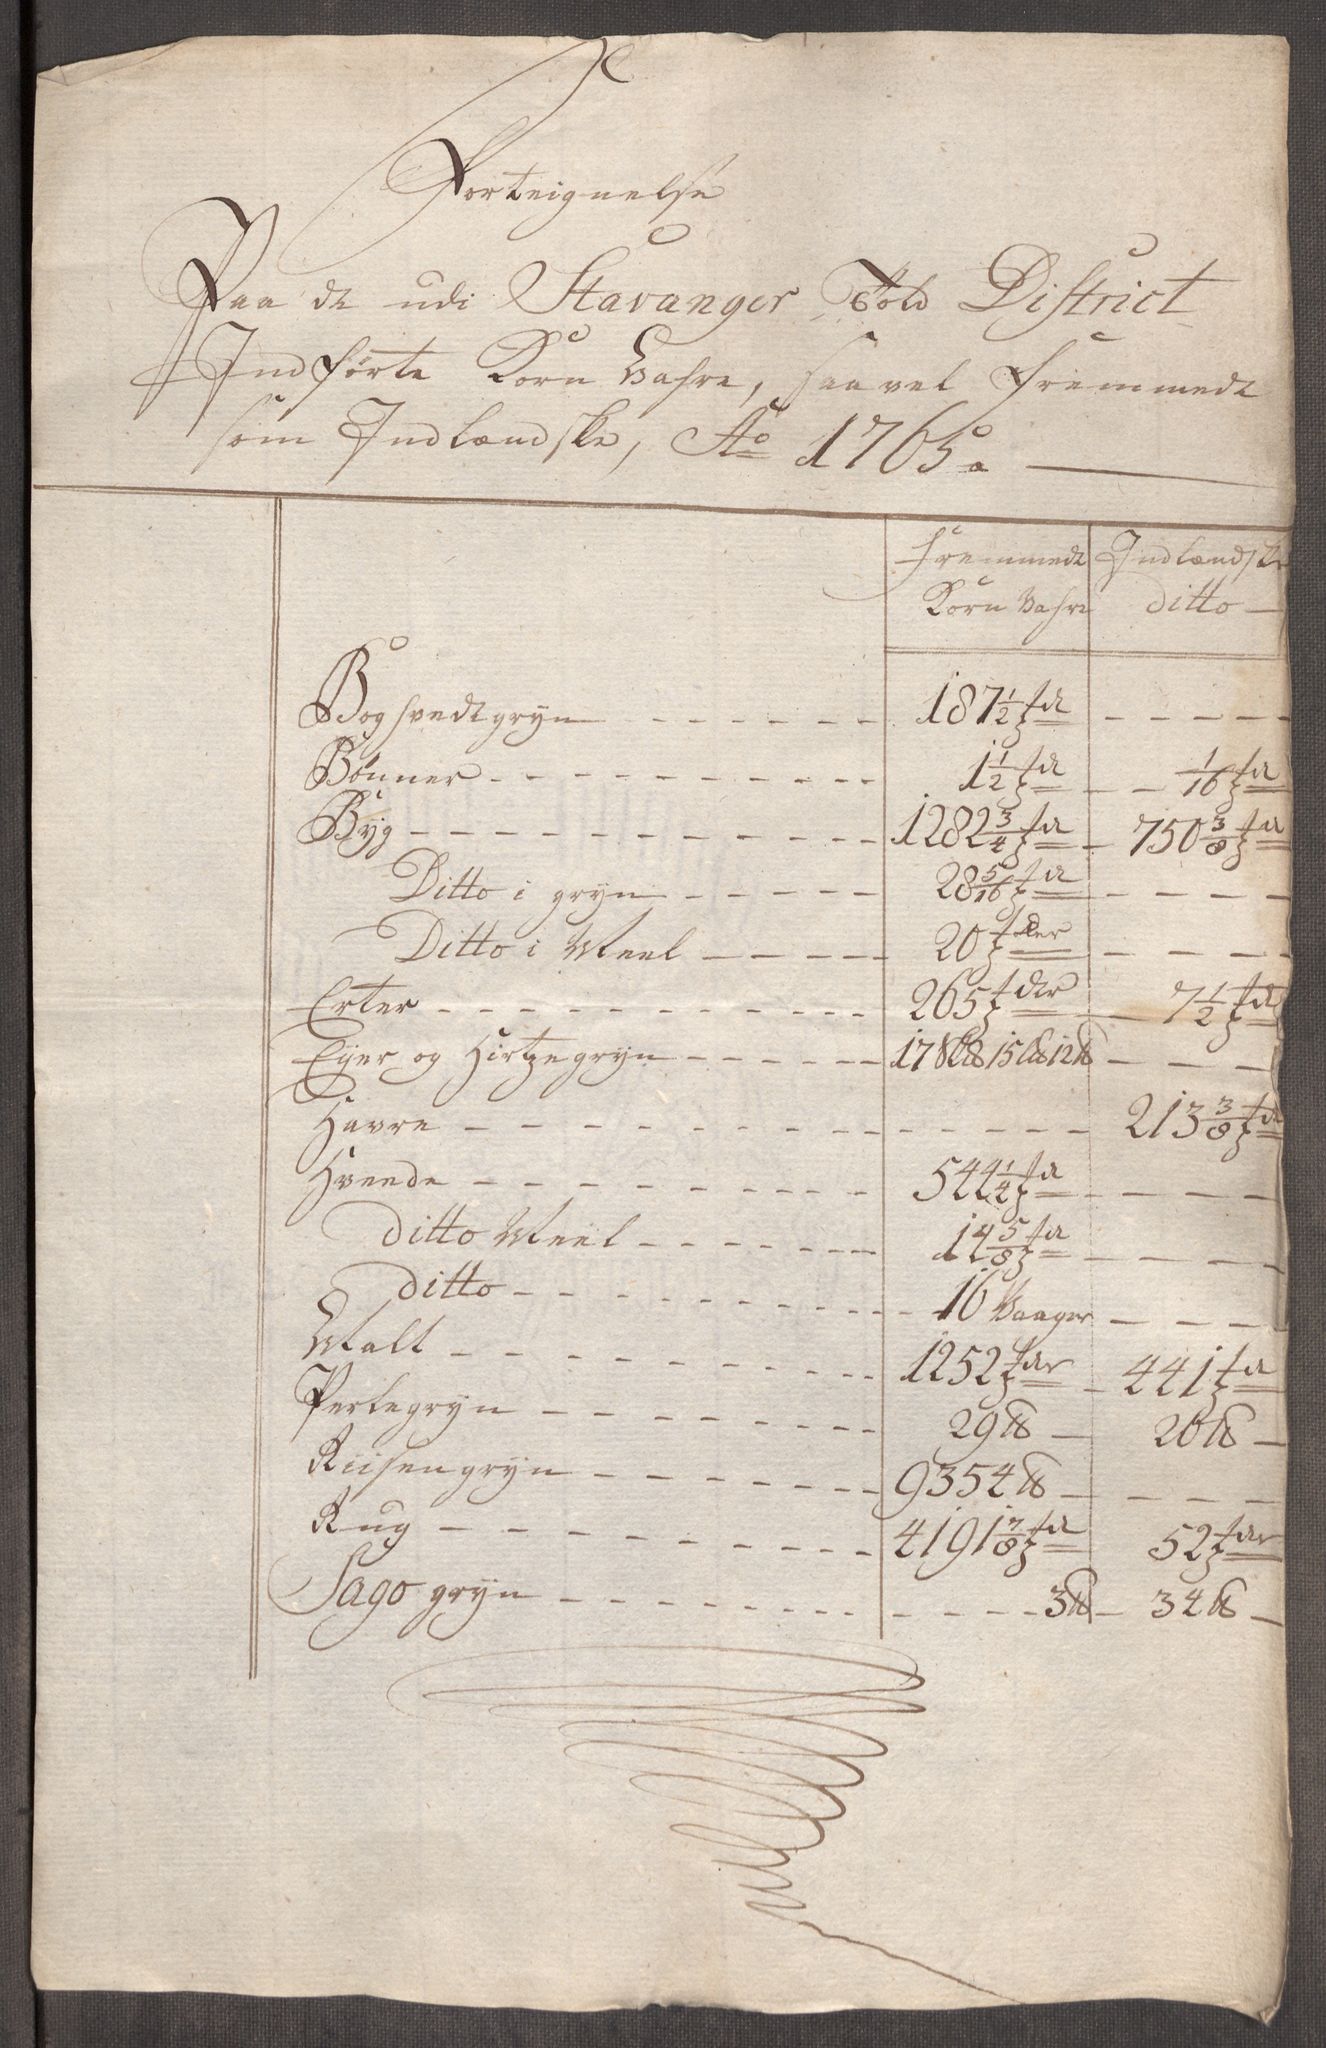 Forteignelse
Paa de udi Stavanger Told District
Indførte Korn Vahre, saavel fremmede
som Indlændske, Ao 1765.
fremmede Indlændske
Korn Vahre ditto
Boghvedegryn 187 1/2 tdr
Bønner 1 1/2 tdr 1/16 tdr
Byg 1282 3/4 tdr 750 3/8 tdr
Ditto i gryn 28 5/16 tdr
Ditto i Meel 20 tdr
Erter 265 tdr 7 1/2 tdr
Eyer og Hirtzegryn 178 15 12 ℔
Havre 213 3/8 tdr
Hveede 544 1/4 tdr
ditto Meel 14 5/8 tdr
ditto 16 Vaager
Malt 1252 tdr 441 tdr
Perlegryn 29 ℔ 20 ℔
Riisengryn 9354 ℔
Rug 4191 7/8 tdr 52 tdr
Sago gryn 3 ℔ 34 ℔